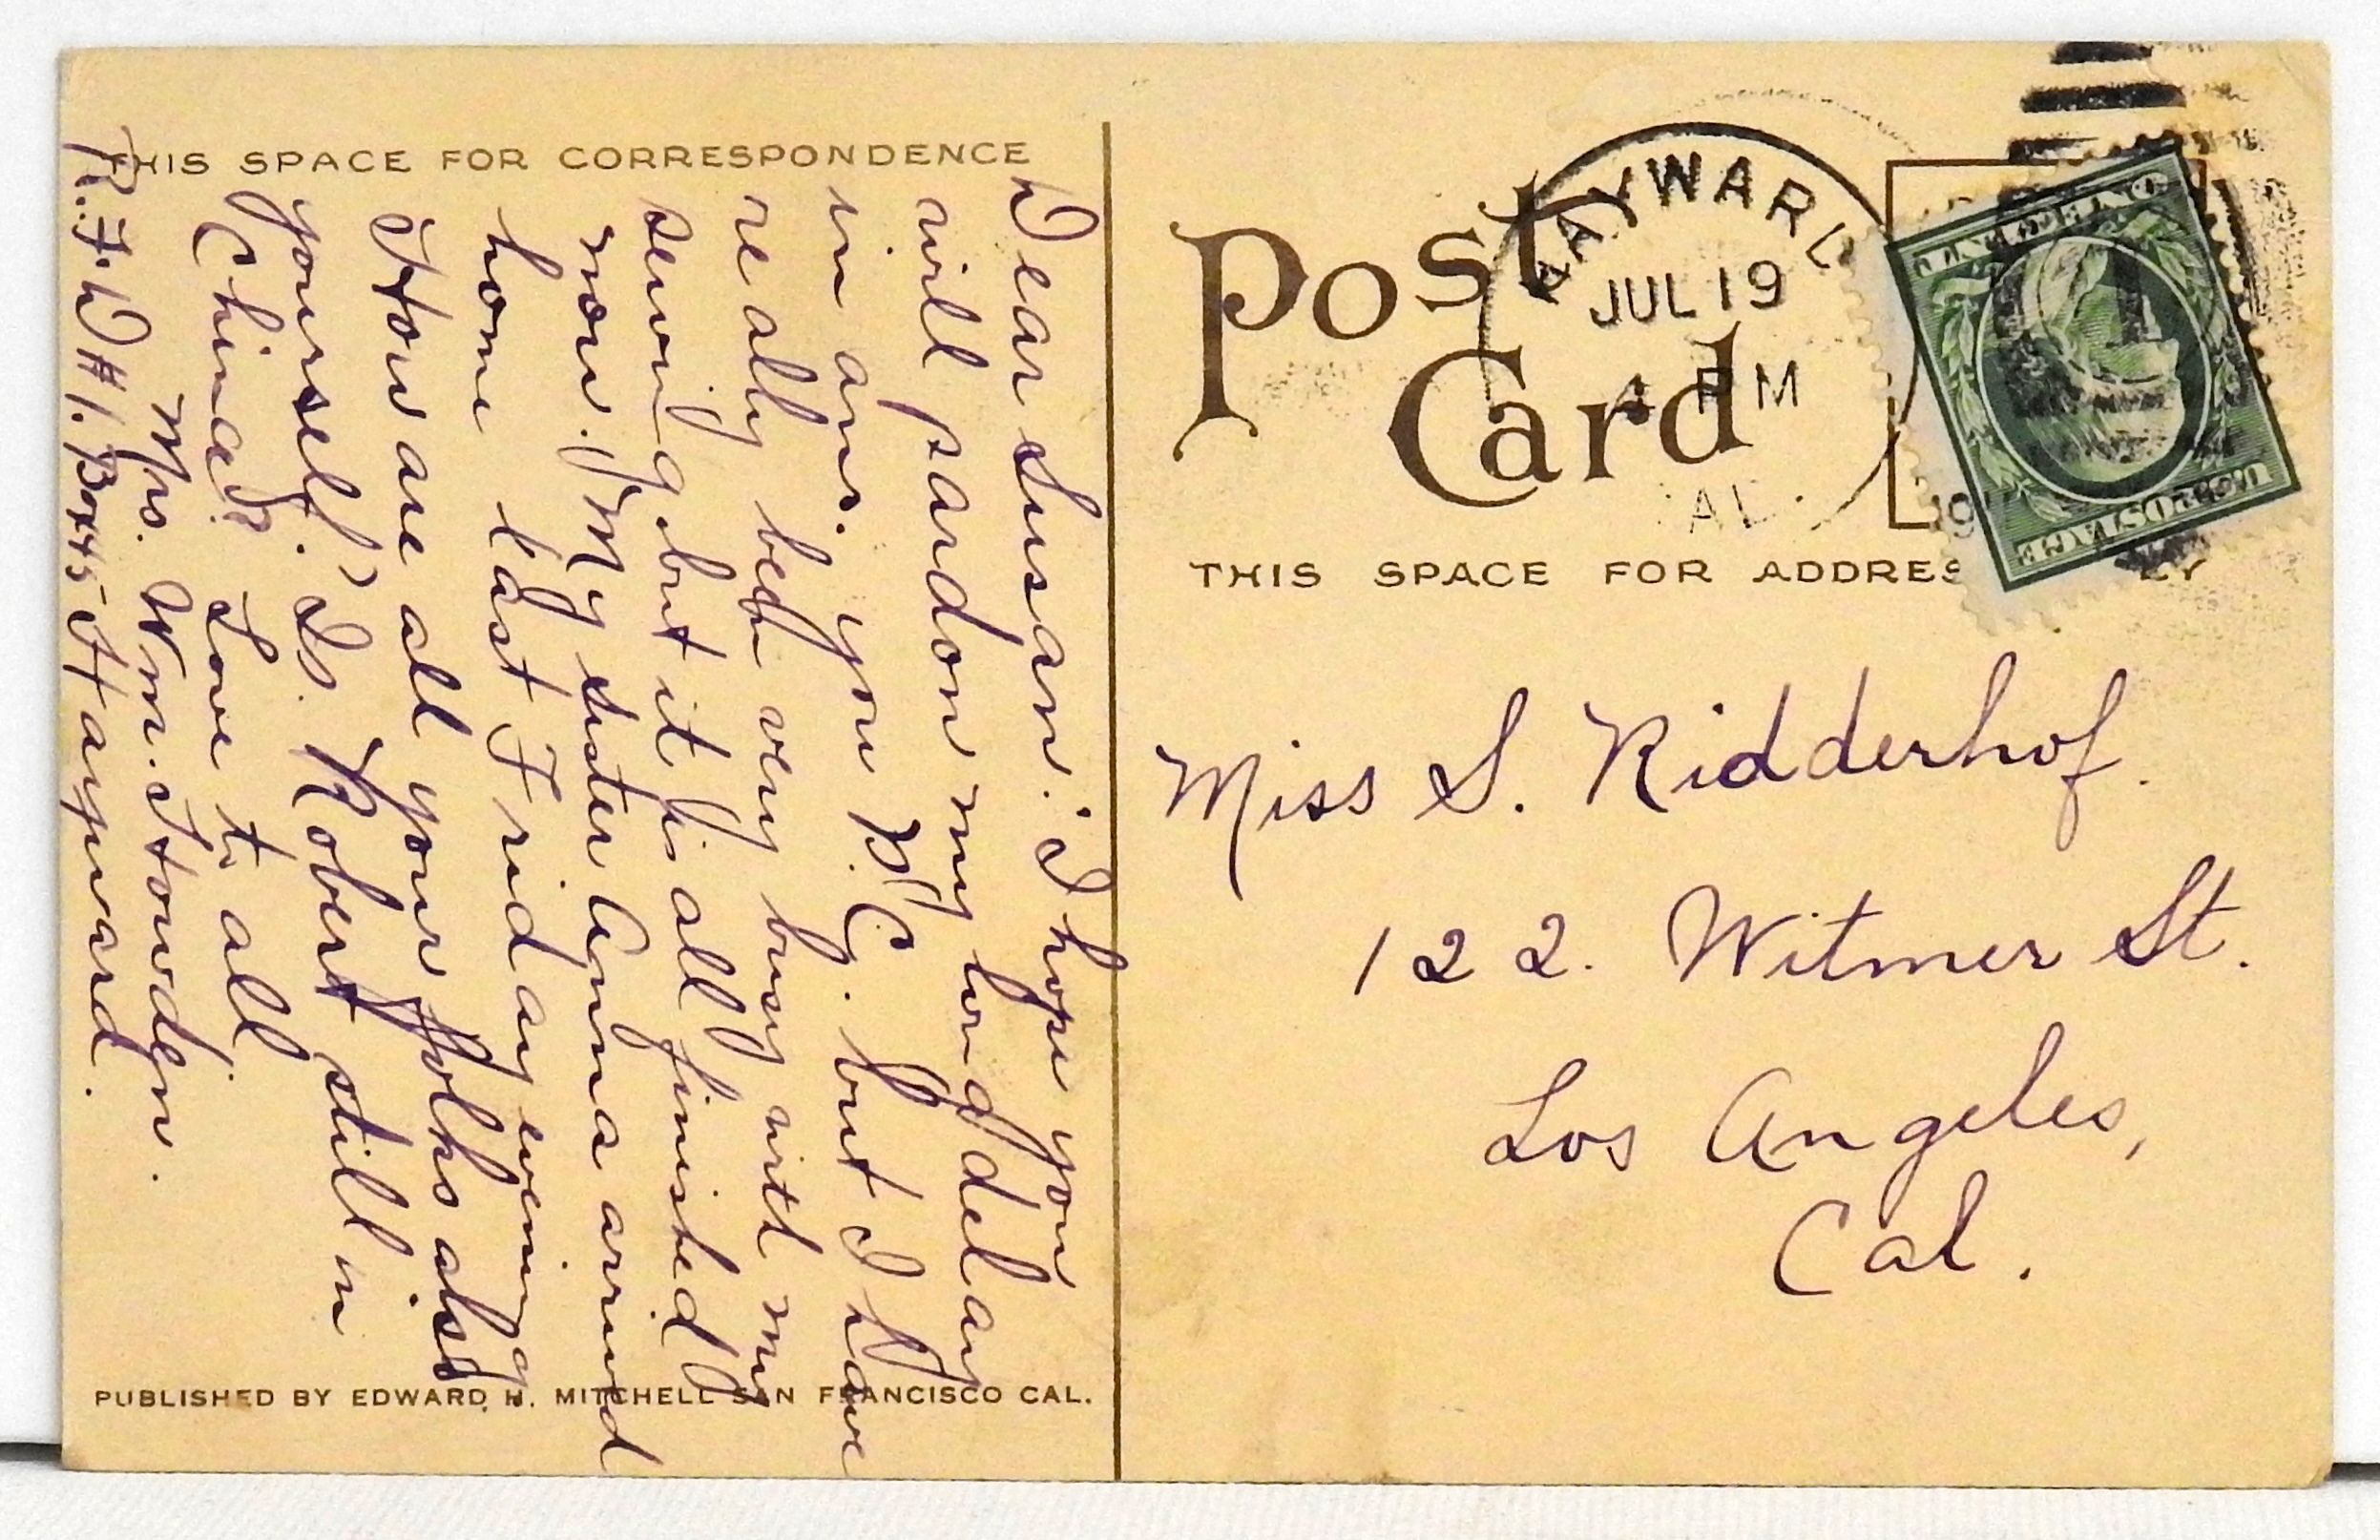 THIS SPACE FOR CORRESPONDENCE
Dear Susan: I hope you
will pardon my long delay
in ans. you P.C. but I have
really been very busy with my
sewing but it is all finished
now. My sister Anna arrived
home last Friday evening
How are all your folks also
yourself. Is Robert still in
China? Love to all
Mrs. Wm. Howden.
R.F.D #1. Box 45 Hayward.
PUBLISHED BY EDWARD H. MITCHELL SAN FRANCISCO CAL.
Post
Card
HAYWARD
JUL 19
4 PM
CAL.
19
U.S. POSTAGE
ONE CENT
THIS SPACE FOR ADDRESS ONLY
Miss S. Ridderhof.
122. Witmer St.
Los Angeles,
Cal.